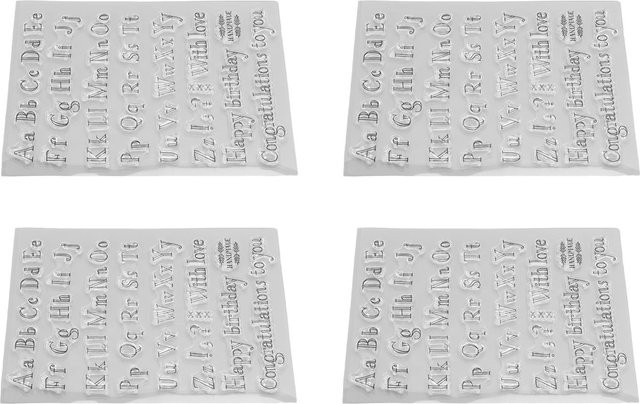 Aa Bb Cc Dd Ee
Ff Gg Hh Ii Jj
Kk Ll Mm Nn Oo
Pp Qq Rr Ss Tt
Uu Vv Ww Xx Yy
Zz ! & ? xxx With love
Happy birthday HANDMADE
Congratulations to you
Aa Bb Cc Dd Ee
Ff Gg Hh Ii Jj
Kk Ll Mm Nn Oo
Pp Qq Rr Ss Tt
Uu Vv Ww Xx Yy
Zz ! & ? xxx With love
Happy birthday HANDMADE
Congratulations to you
Aa Bb Cc Dd Ee
Ff Gg Hh Ii Jj
Kk Ll Mm Nn Oo
Pp Qq Rr Ss Tt
Uu Vv Ww Xx Yy
Zz ! & ? xxx With love
Happy birthday HANDMADE
Congratulations to you
Aa Bb Cc Dd Ee
Ff Gg Hh Ii Jj
Kk Ll Mm Nn Oo
Pp Qq Rr Ss Tt
Uu Vv Ww Xx Yy
Zz ! & ? xxx With love
Happy birthday HANDMADE
Congratulations to you